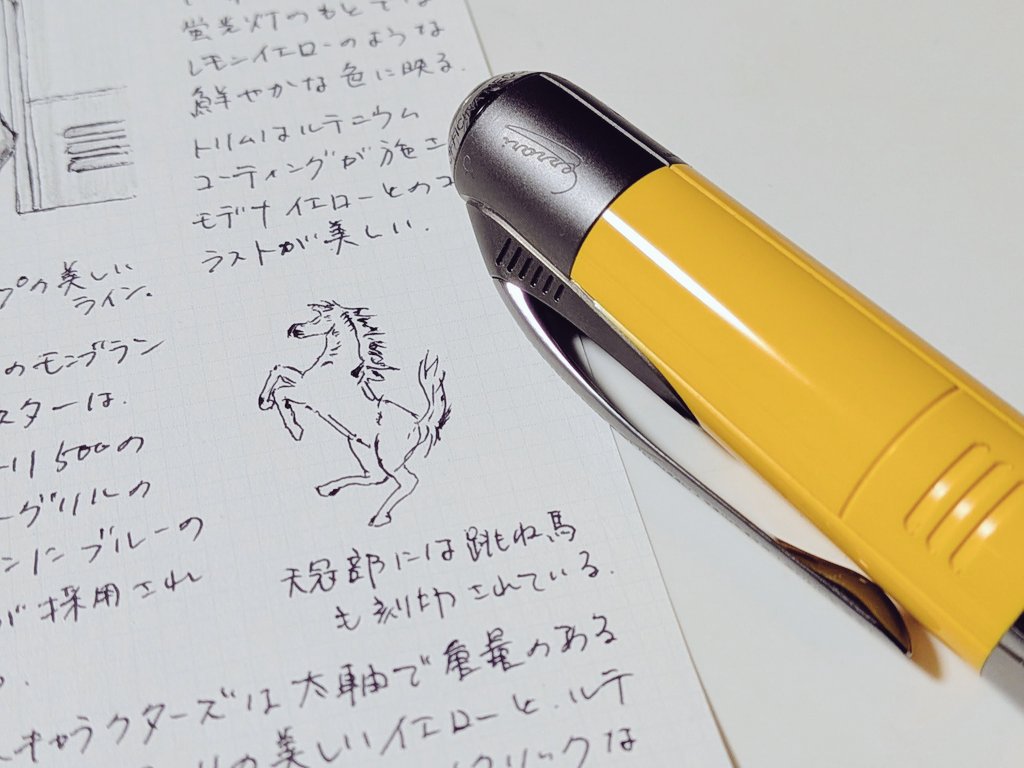 蛍光灯のもとでは
レモンイエローのような
鮮やかな色に映る.
トリムはルテニウム
コーティングが施さ
モデナイエローとのコ
ラストが美しい.
プの美しい
ライン.
のモンブラン
スターは.
リ500の
ーグリルの
ンにブルーの
が採用され
天冠部には跳ね馬
も刻切されている.
キャラクターズは太軸で重量のある
の美しいイエローと.ルテ
クリックな
Ferrari